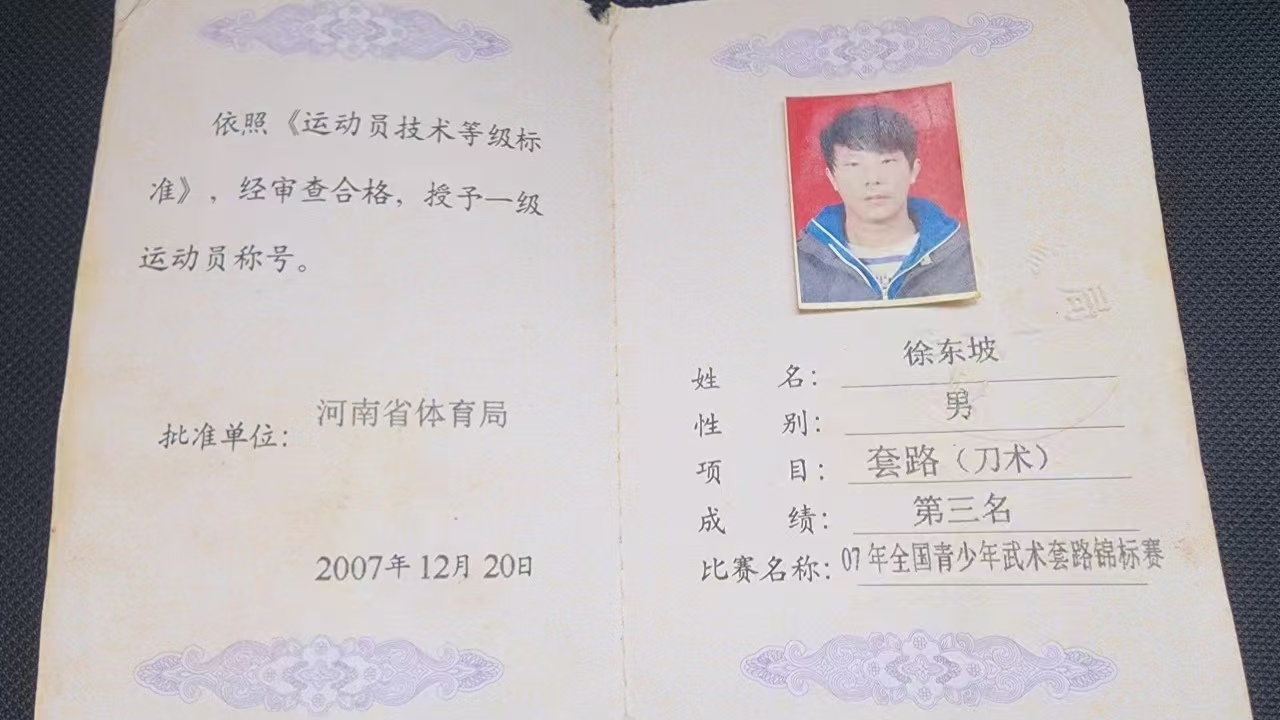 依照《运动员技术等级标
准》，经审查合格，授予一级
运动员称号。
批准单位：河南省体育局
2007年12月20日
姓 名：徐东坡
性 别：男
项 目：套路（刀术）
成 绩：第三名
比赛名称：07年全国青少年武术套路锦标赛